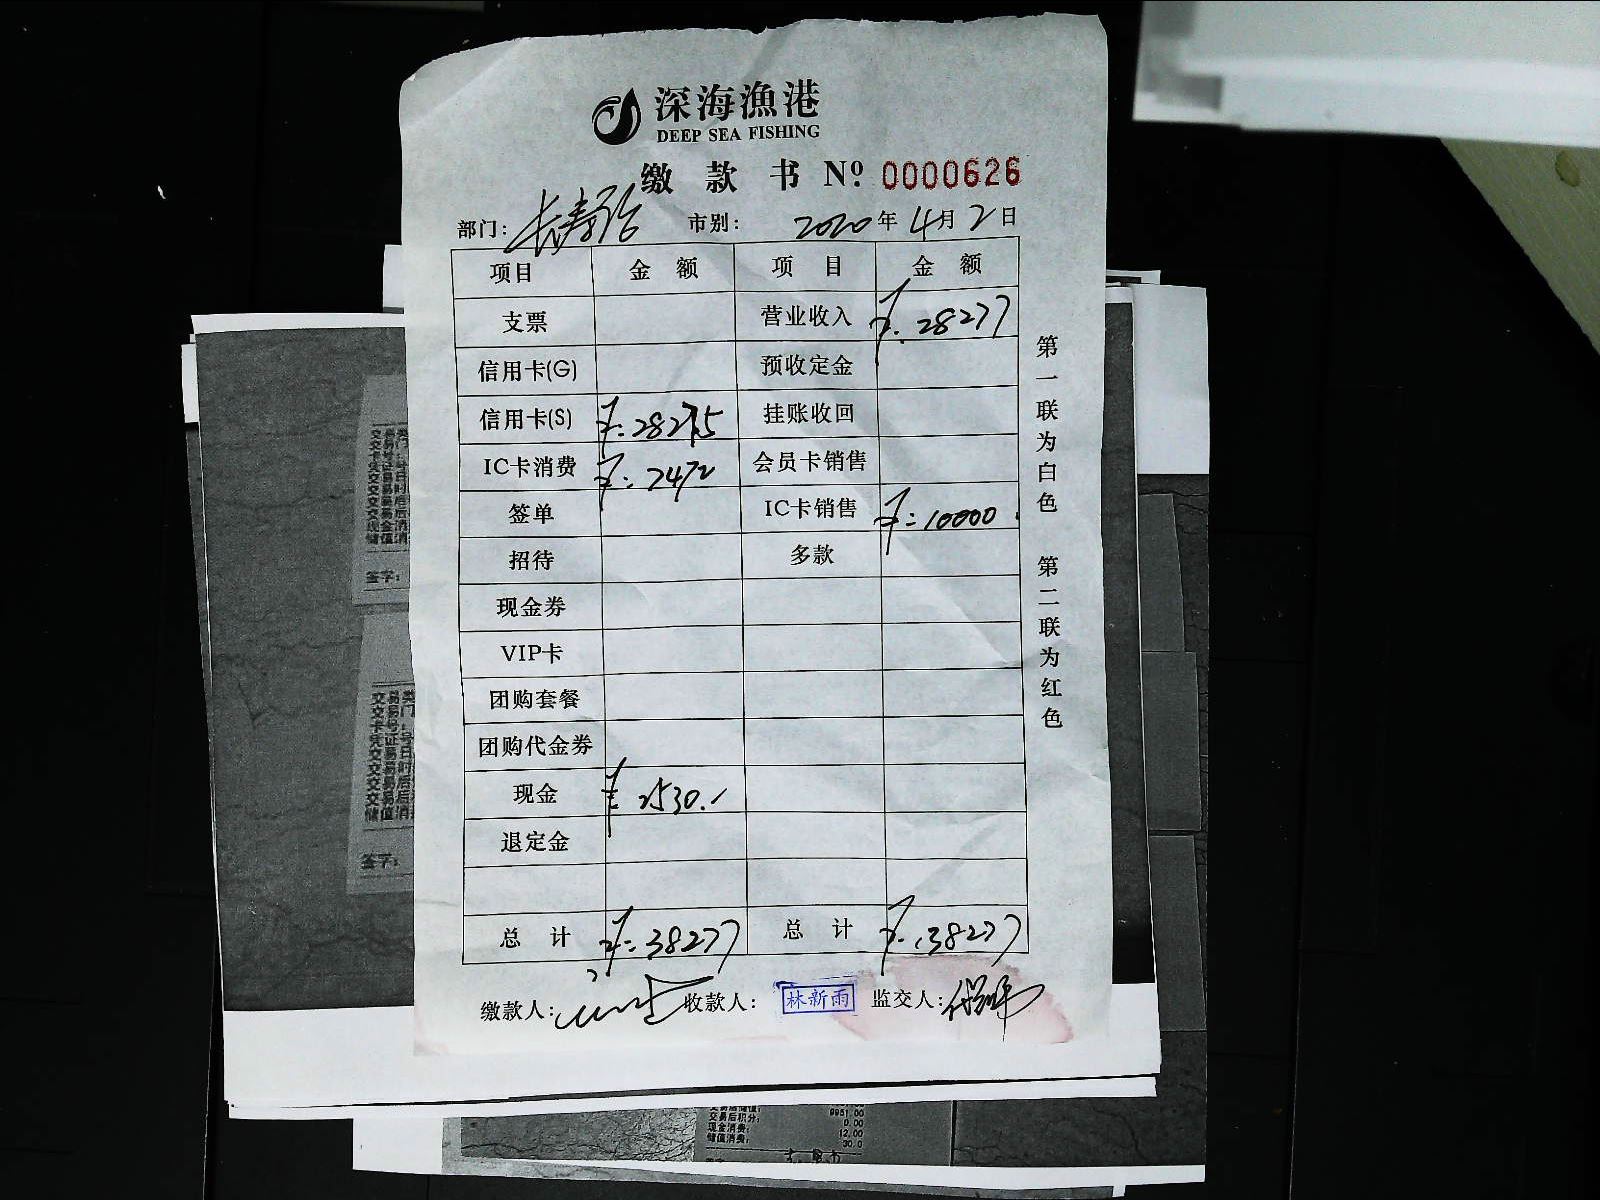 深海漁港
DEEP SEA FISHING
缴款书 Nº 0000626
部门: 长寿路 市别: 2020年4月2日
项目 金额 项目 金额
支票 营业收入 ¥:28277
信用卡(G) 预收定金
信用卡(S) ¥:28275 挂账收回
IC卡消费 ¥:7472 会员卡销售
签单 IC卡销售 ¥:10000
招待 多款
现金券
VIP卡
团购套餐
团购代金券
现金 ¥:2530.
退定金
总计 ¥:38277 总计 ¥:38277
缴款人: 收款人: 林新雨 监交人:
第一联为白色 第二联为红色
签字:
签字:
9951.00
交易后积分: 0.00
现金消费: 12.00
储值消费: 30.0